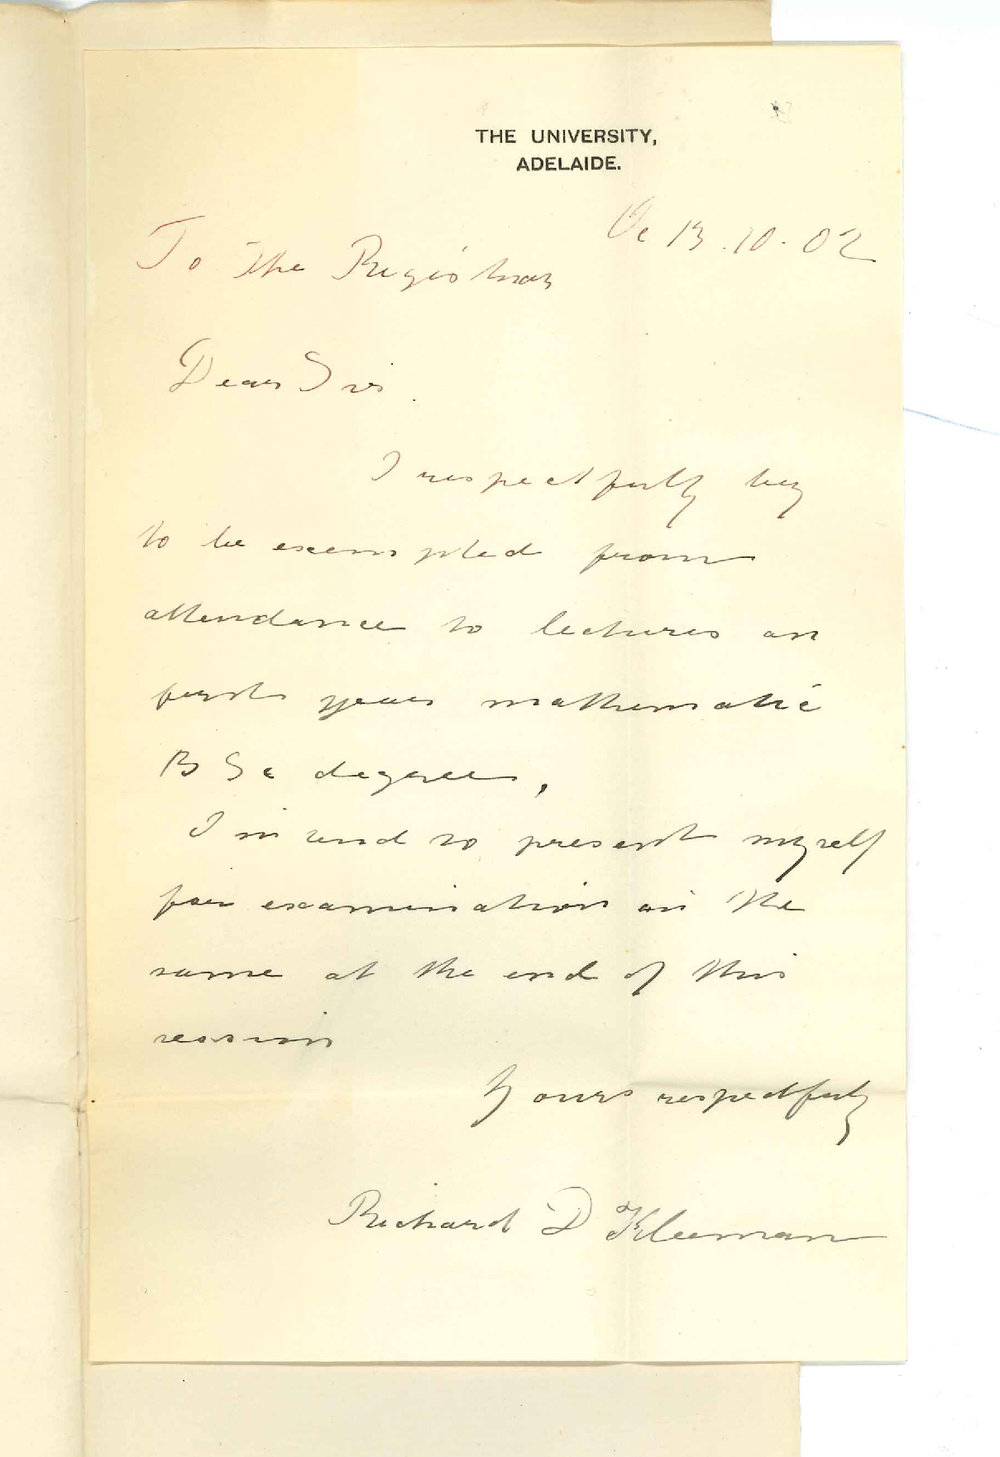 THE UNIVERSITY,
ADELAIDE.
Oc 13.10.02
To the Registrar
Dear Sir.
I respectfully beg
to be exempted from
attendance to lectures on
first year mathematic
B Sc degree,
I intend to present myself
for examination in the
same at the end of this
session
Yours respectfuly
Richard D Kleeman